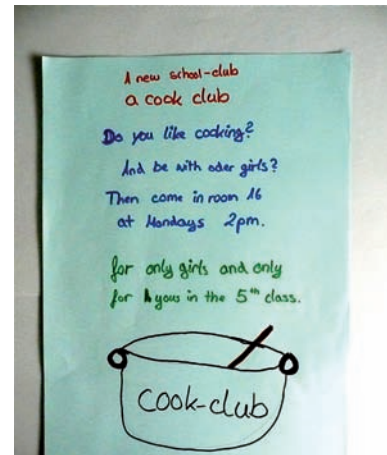 A new school-club
a cook club
Do you like cooking?
And be with oder girls?
Then come in room 16
at Mondays 2pm.
for only girls and only
for yous in the 5th class.
cook-club